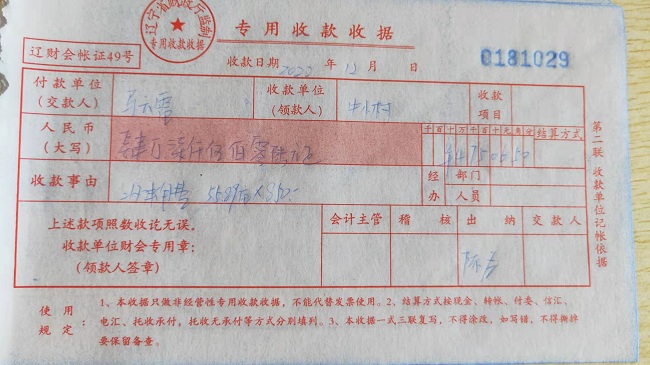 辽宁省财政厅监制
专用收款收据
专用收款收据
辽财会帐证49号
收款日期 2022 年 12 月 日
0181029
付款单位
(交款人)
收款单位
(领款人)
收款
项目
人民币
(大写)
千百十万千百十元角分 结算方式
收款事由
经 部门
办 人员
上述款项照数收讫无误。
收款单位财会专用章:
(领款人签章)
会计主管 稽核 出纳 交款人
第二联 收款单位记帐依据
使用
规定:
1、本收据只做非经营性专用收款收据,不能代替发票使用。2、结算方式按现金、转帐、付委、信汇、
电汇、托收承付,托收无承付等方式分别填列。3、本收据一式三联复写,不得涂改,如写错,不得撕掉
要保留备查。